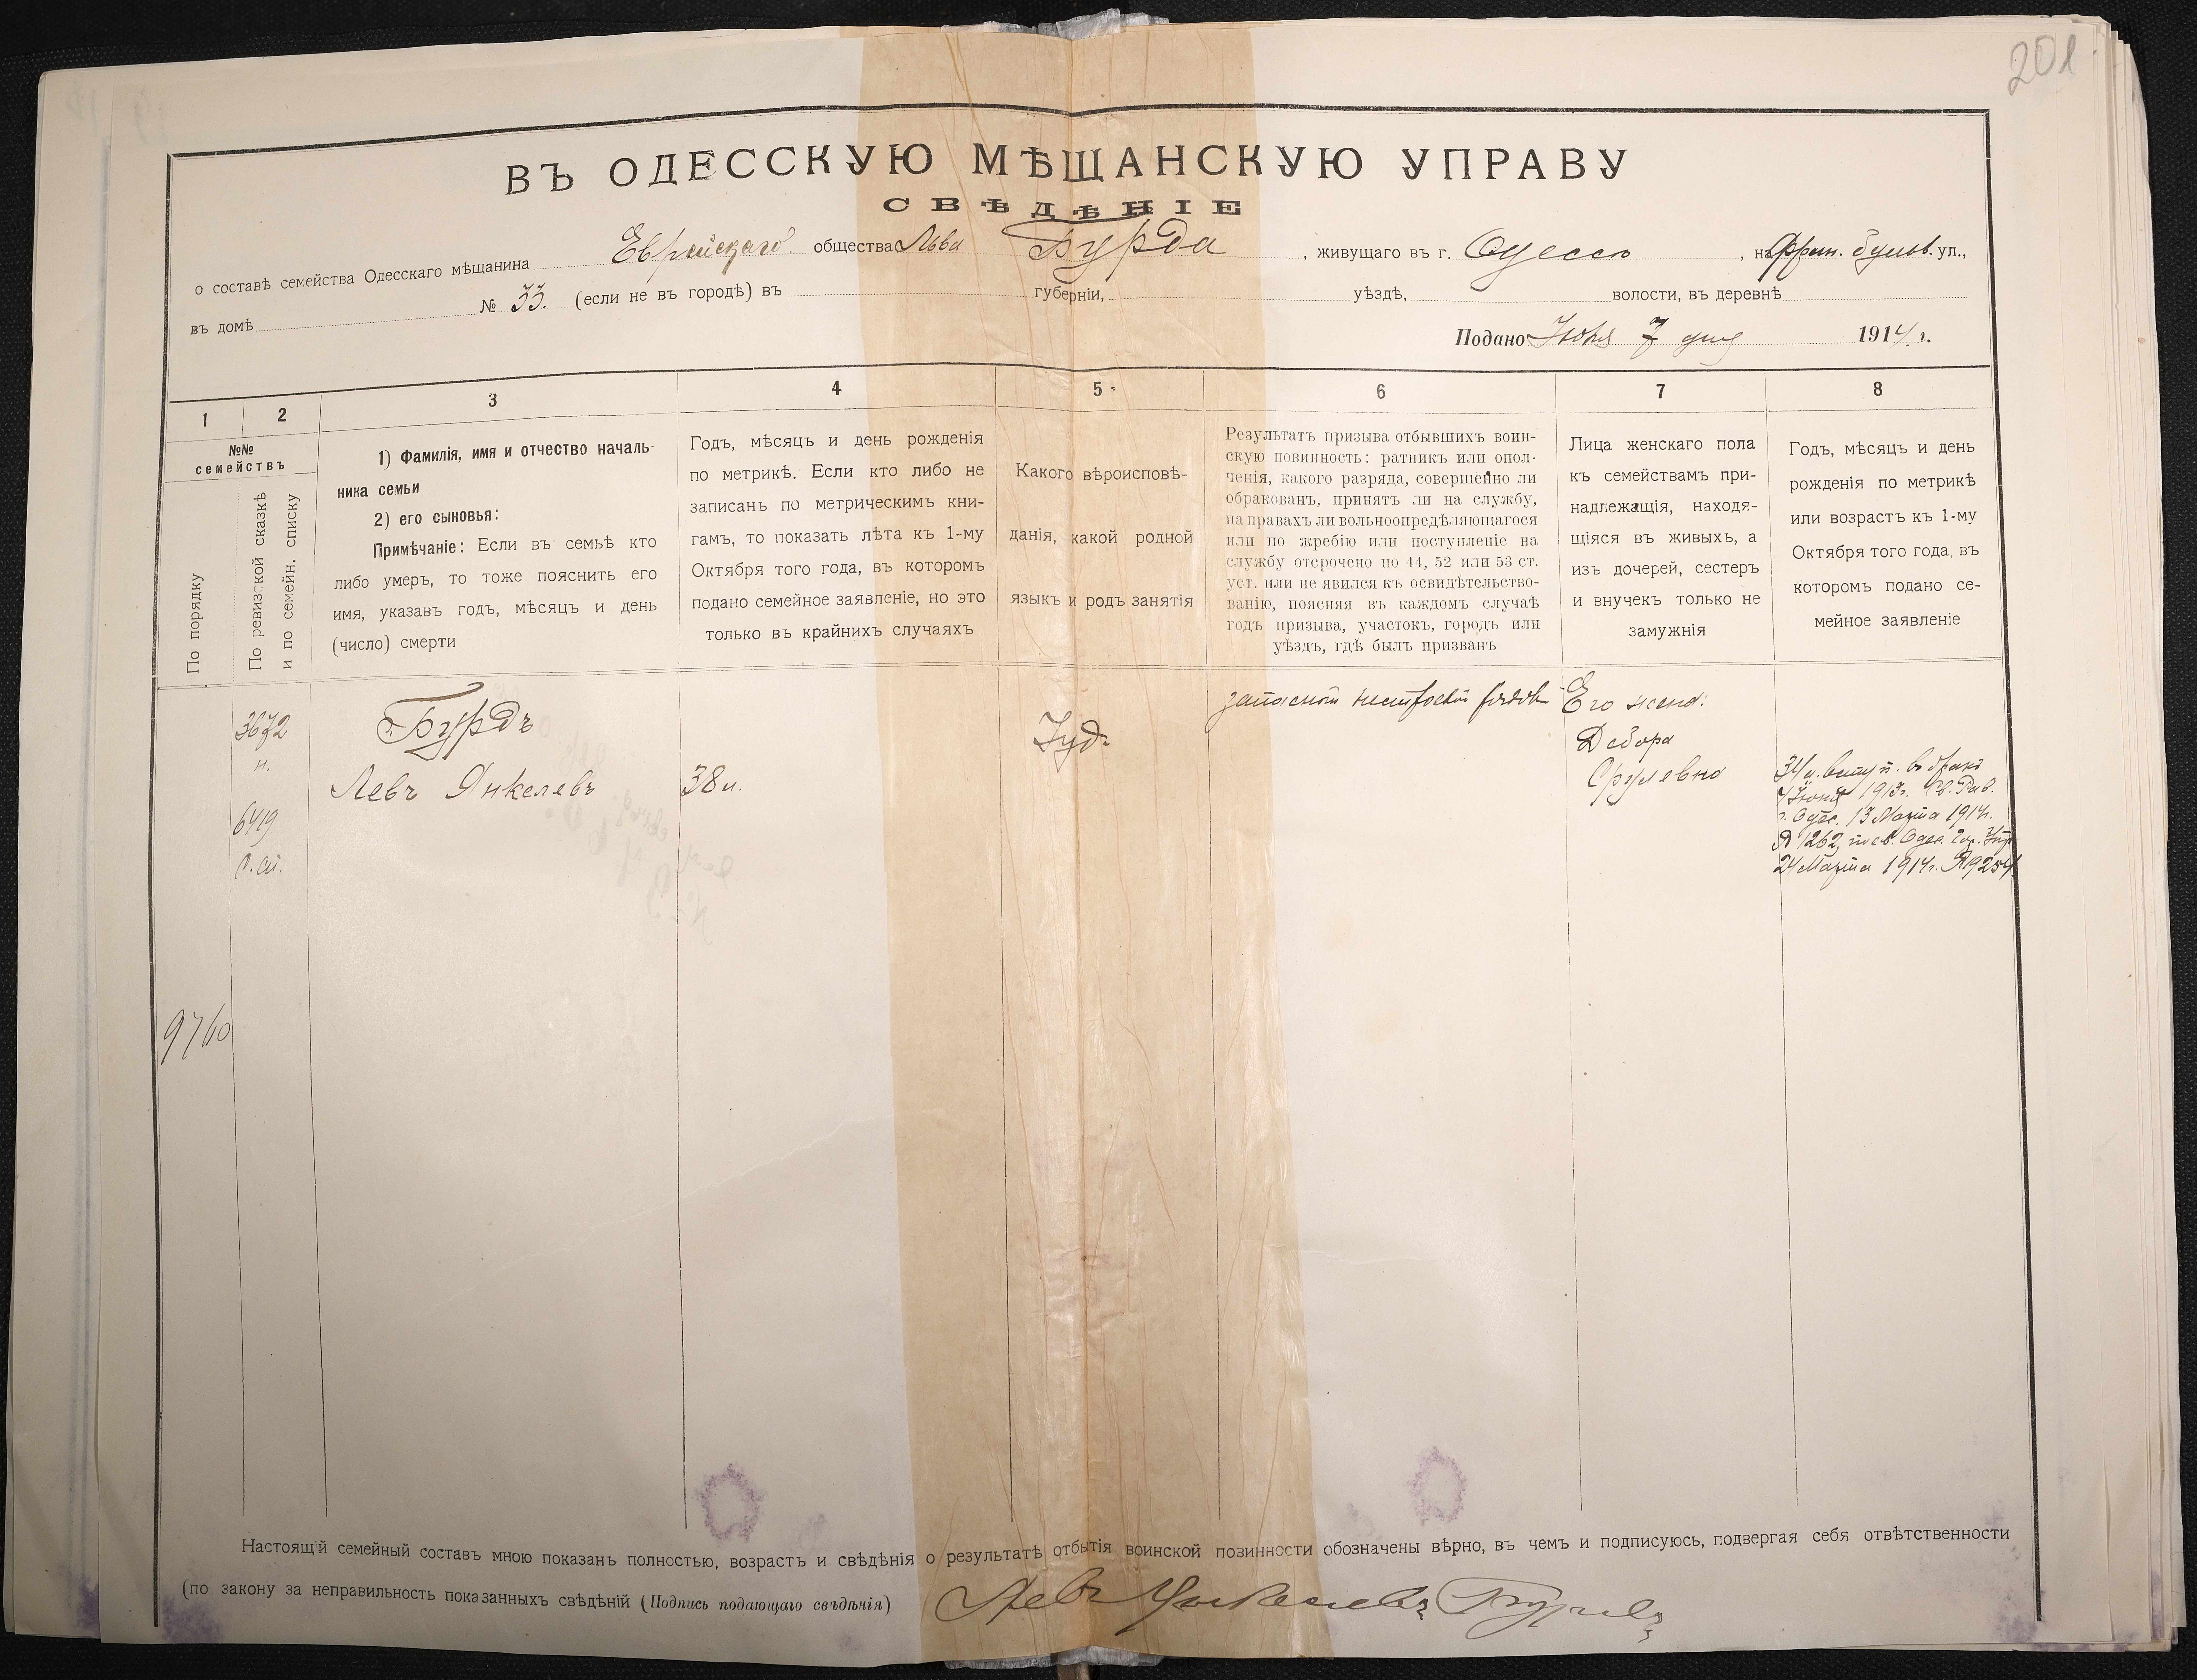 201
ВЪ ОДЕССКУЮ МѢЩАНСКУЮ УПРАВУ
СВѢДѢНІЕ
о составѣ семейства Одесскаго мѣщанина Еврейскаго общества Льва Бурда, живущаго въ г. Одессѣ, на Фран. бульв. ул.,
въ домѣ № 33. (если не въ городѣ) въ губерніи, уѣздѣ, волости, въ деревнѣ
Подано Іюня 7 дня 1914 г.
1 2 3 4 5 6 7 8
№№
семействъ
По порядку
По ревизской сказкѣ
и по семейн. списку
1) Фамилія, имя и отчество началь-
ника семьи
2) его сыновья:
Примѣчаніе: Если въ семьѣ кто
либо умеръ, то тоже пояснить его
имя, указавъ годъ, мѣсяцъ и день
(число) смерти
Годъ, мѣсяцъ и день рожденія
по метрикѣ. Если кто либо не
записанъ по метрическимъ кни-
гамъ, то показать лѣта къ 1-му
Октября того года, въ которомъ
подано семейное заявленіе, но это
только въ крайнихъ случаяхъ
Какого вѣроисповѣ-
данія, какой родной
языкъ и родъ занятія
Результатъ призыва отбывшихъ воин-
скую повинность: ратникъ или опол-
ченія, какого разряда, совершенно ли
обракованъ, принятъ ли на службу,
на правахъ ли вольноопредѣляющагося
или по жребію или поступленіе на
службу отсрочено по 44, 52 или 53 ст.
уст. или не явился къ освидѣтельство-
ванію, поясняя въ каждомъ случаѣ
годъ призыва, участокъ, городъ или
уѣздъ, гдѣ былъ призванъ
Лица женскаго пола
къ семействамъ при-
надлежащія, находя-
щіяся въ живыхъ, а
изъ дочерей, сестеръ
и внучекъ только не
замужнія
Годъ, мѣсяцъ и день
рожденія по метрикѣ
или возрастъ къ 1-му
Октября того года, въ
которомъ подано се-
мейное заявленіе
9760
3672
н.
6419
Бурдъ
Левъ Янкелевъ
38 л.
Іуд.
запасной нестроевой рядов.
Его жена:
Дебора
Срулевна
34 л. вступ. въ бракъ
4 Іюня 1913 г. Св. Рав.
г. Одес. 13 Марта 1914 г.
№ 1262, Одес. Гор. Упр.
24 Марта 1914 г. № 19254
Настоящій семейный составъ мною показанъ полностью, возрастъ и свѣдѣнія о результатѣ отбытія воинской повинности обозначены вѣрно, въ чемъ и подписуюсь, подвергая себя отвѣтственности
(по закону за неправильность показанныхъ свѣдѣній (Подпись подающаго свѣдѣнія) Левъ Янкелевъ Бурдъ